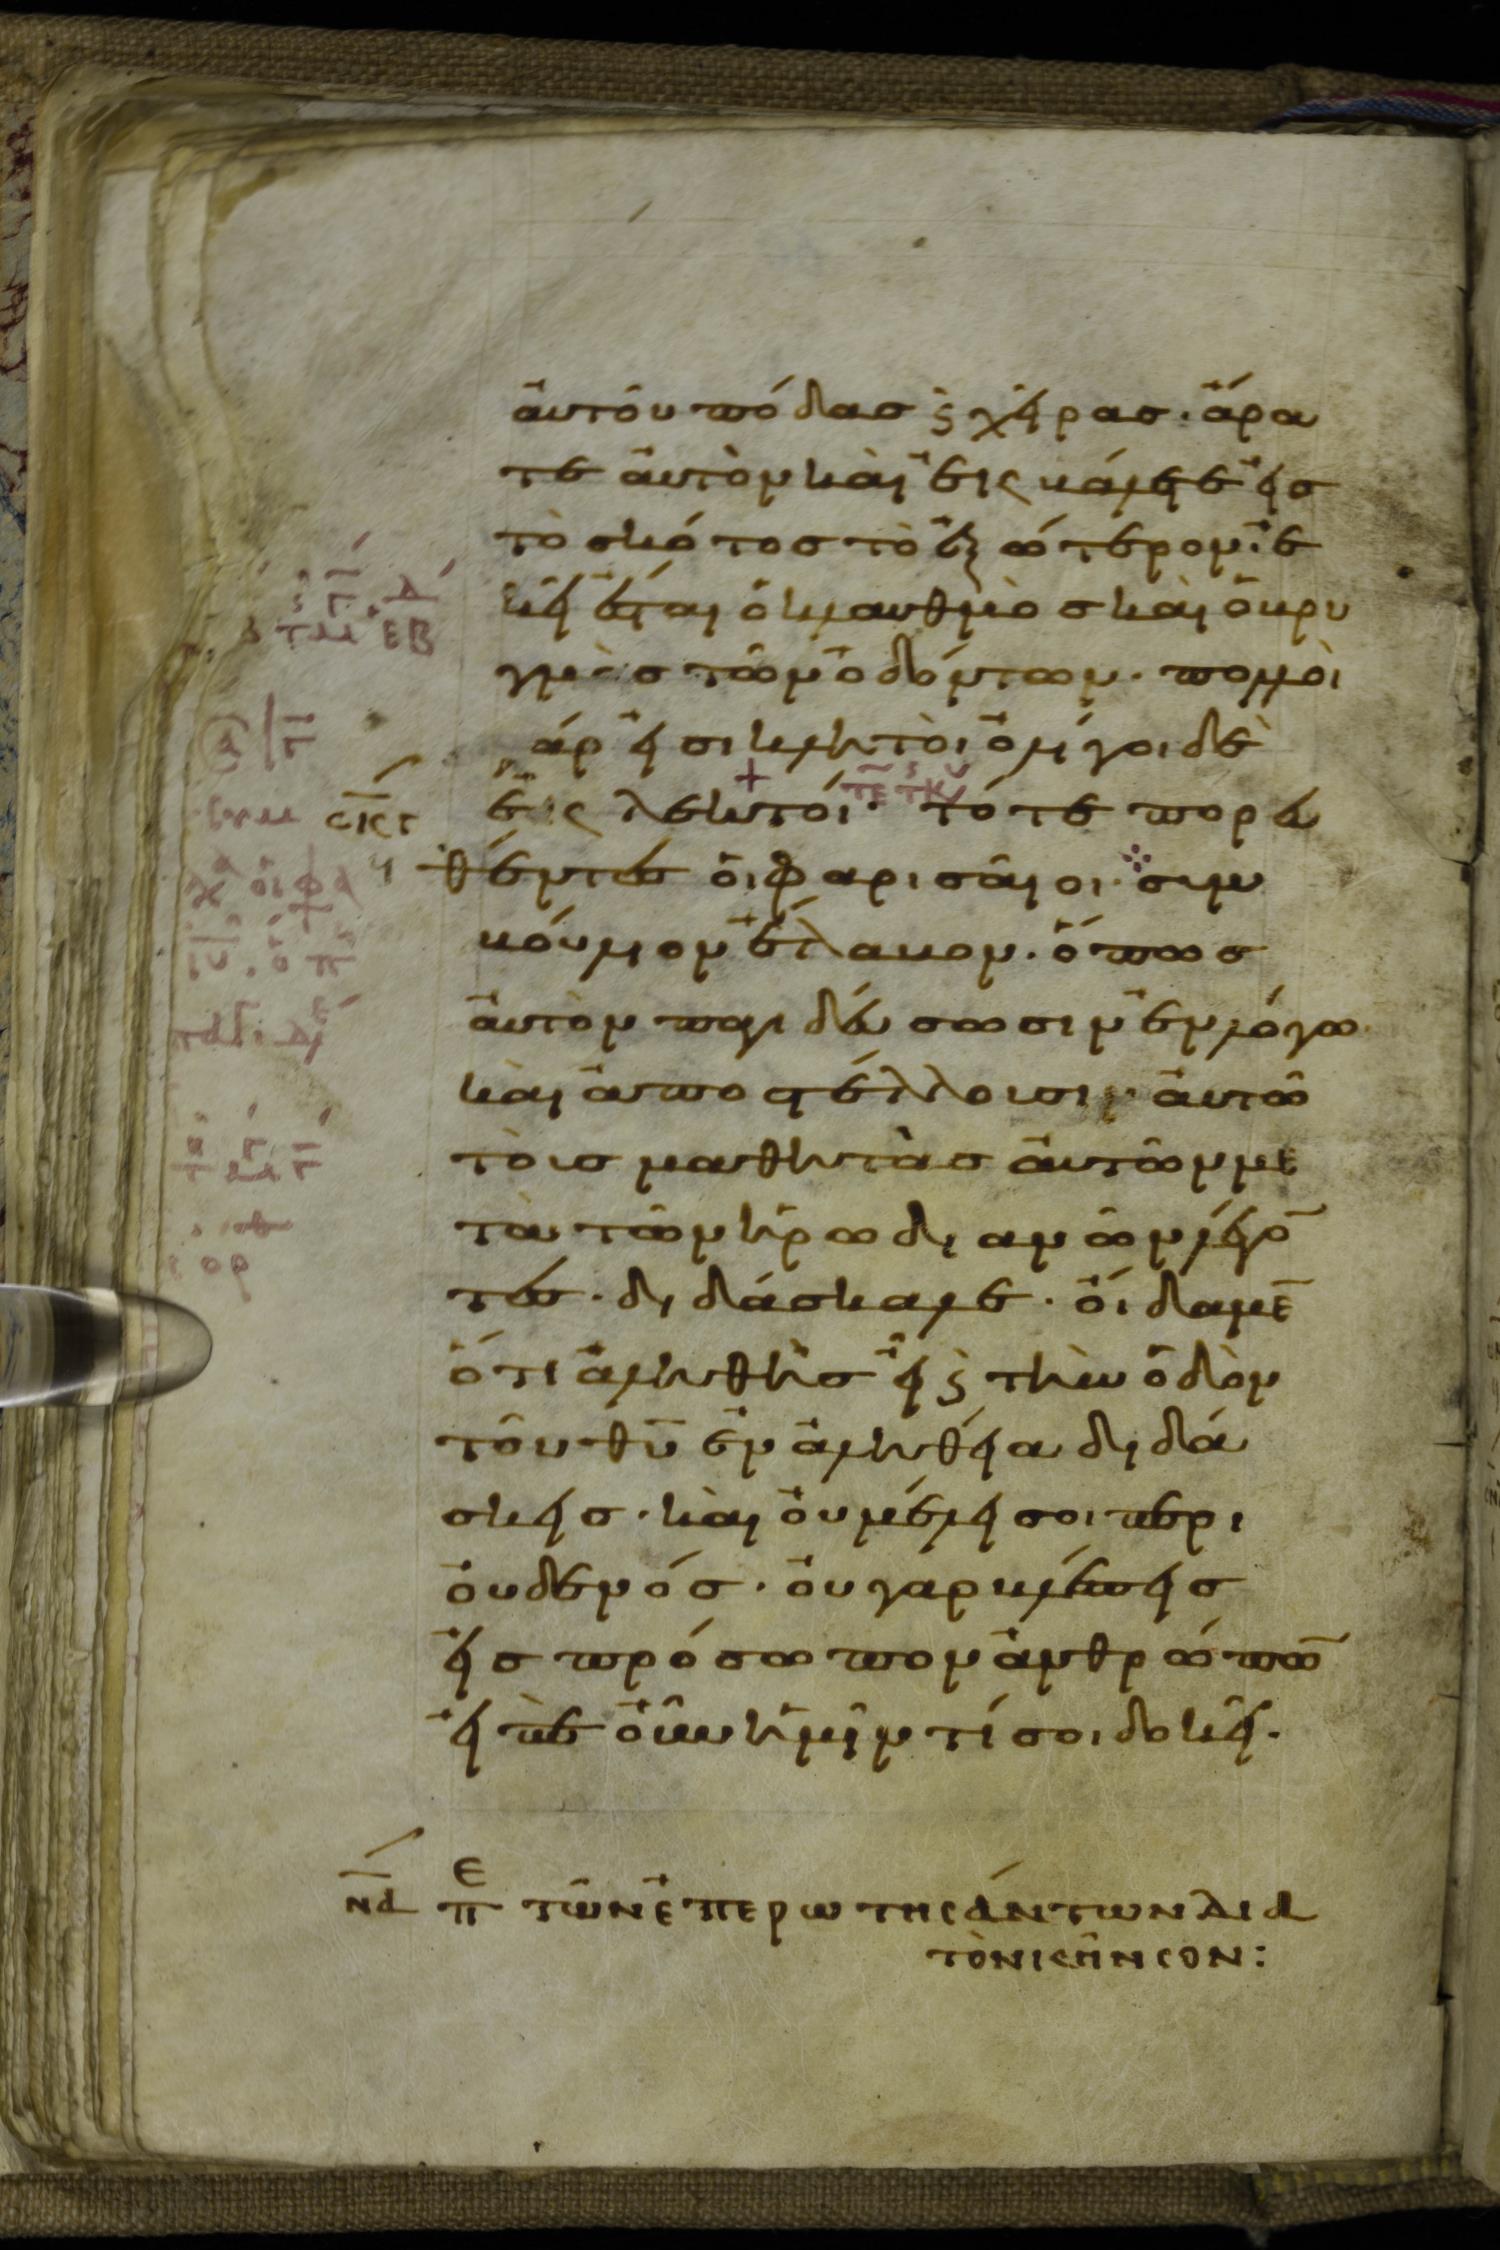 ἀυτοῦ πόδασ κ χεῖρασ· ἄρα
τε ἀυτὸν καὶ ἐκβάλετε εἰσ
τὸ σκότοσ τὸ ἐξώτερον· ἐ
κεῖ ἔσται ὁ κλαυθμὸσ καὶ ὁ βρυ
γμὸσ τῶν ὀδόντων· πολλοὶ
γάρ εἰσι κλητοὶ ὀλίγοι δὲ
ἐκλεκτοί· τότε πορευ
θέντεσ ὁι φαρισαῖοι· συμ
βούλιον ἔλαβον· ὅπωσ
ἀυτὸν παγιδεύσωσιν ἐν λόγω
καὶ ἀποστέλλουσιν· ἀυτῶ
τοὺσ μαθητὰσ ἀυτῶν με
τὰ τῶν ἡρωδιανῶν λέγο
τεσ· διδάσκαλε· ὄιδαμε
ὅτι ἀληθὴσ εἶ κ τὴν ὁδὸν
τοῦ θυ ἐν ἀληθεία διδά
σκεισ· καὶ ὀυ μέλει σοι περι
ὀυδενόσ· ὀυ γαρ βλέπεισ
εἰσ πρόσωπον ἀνθρώπω
εἰπὲ ὀῦν ἡμῖν τί σοι δοκεῖ·
νδ πε τῶν ἐπερωτησάντων διὰ
τὸν κῆνσον: